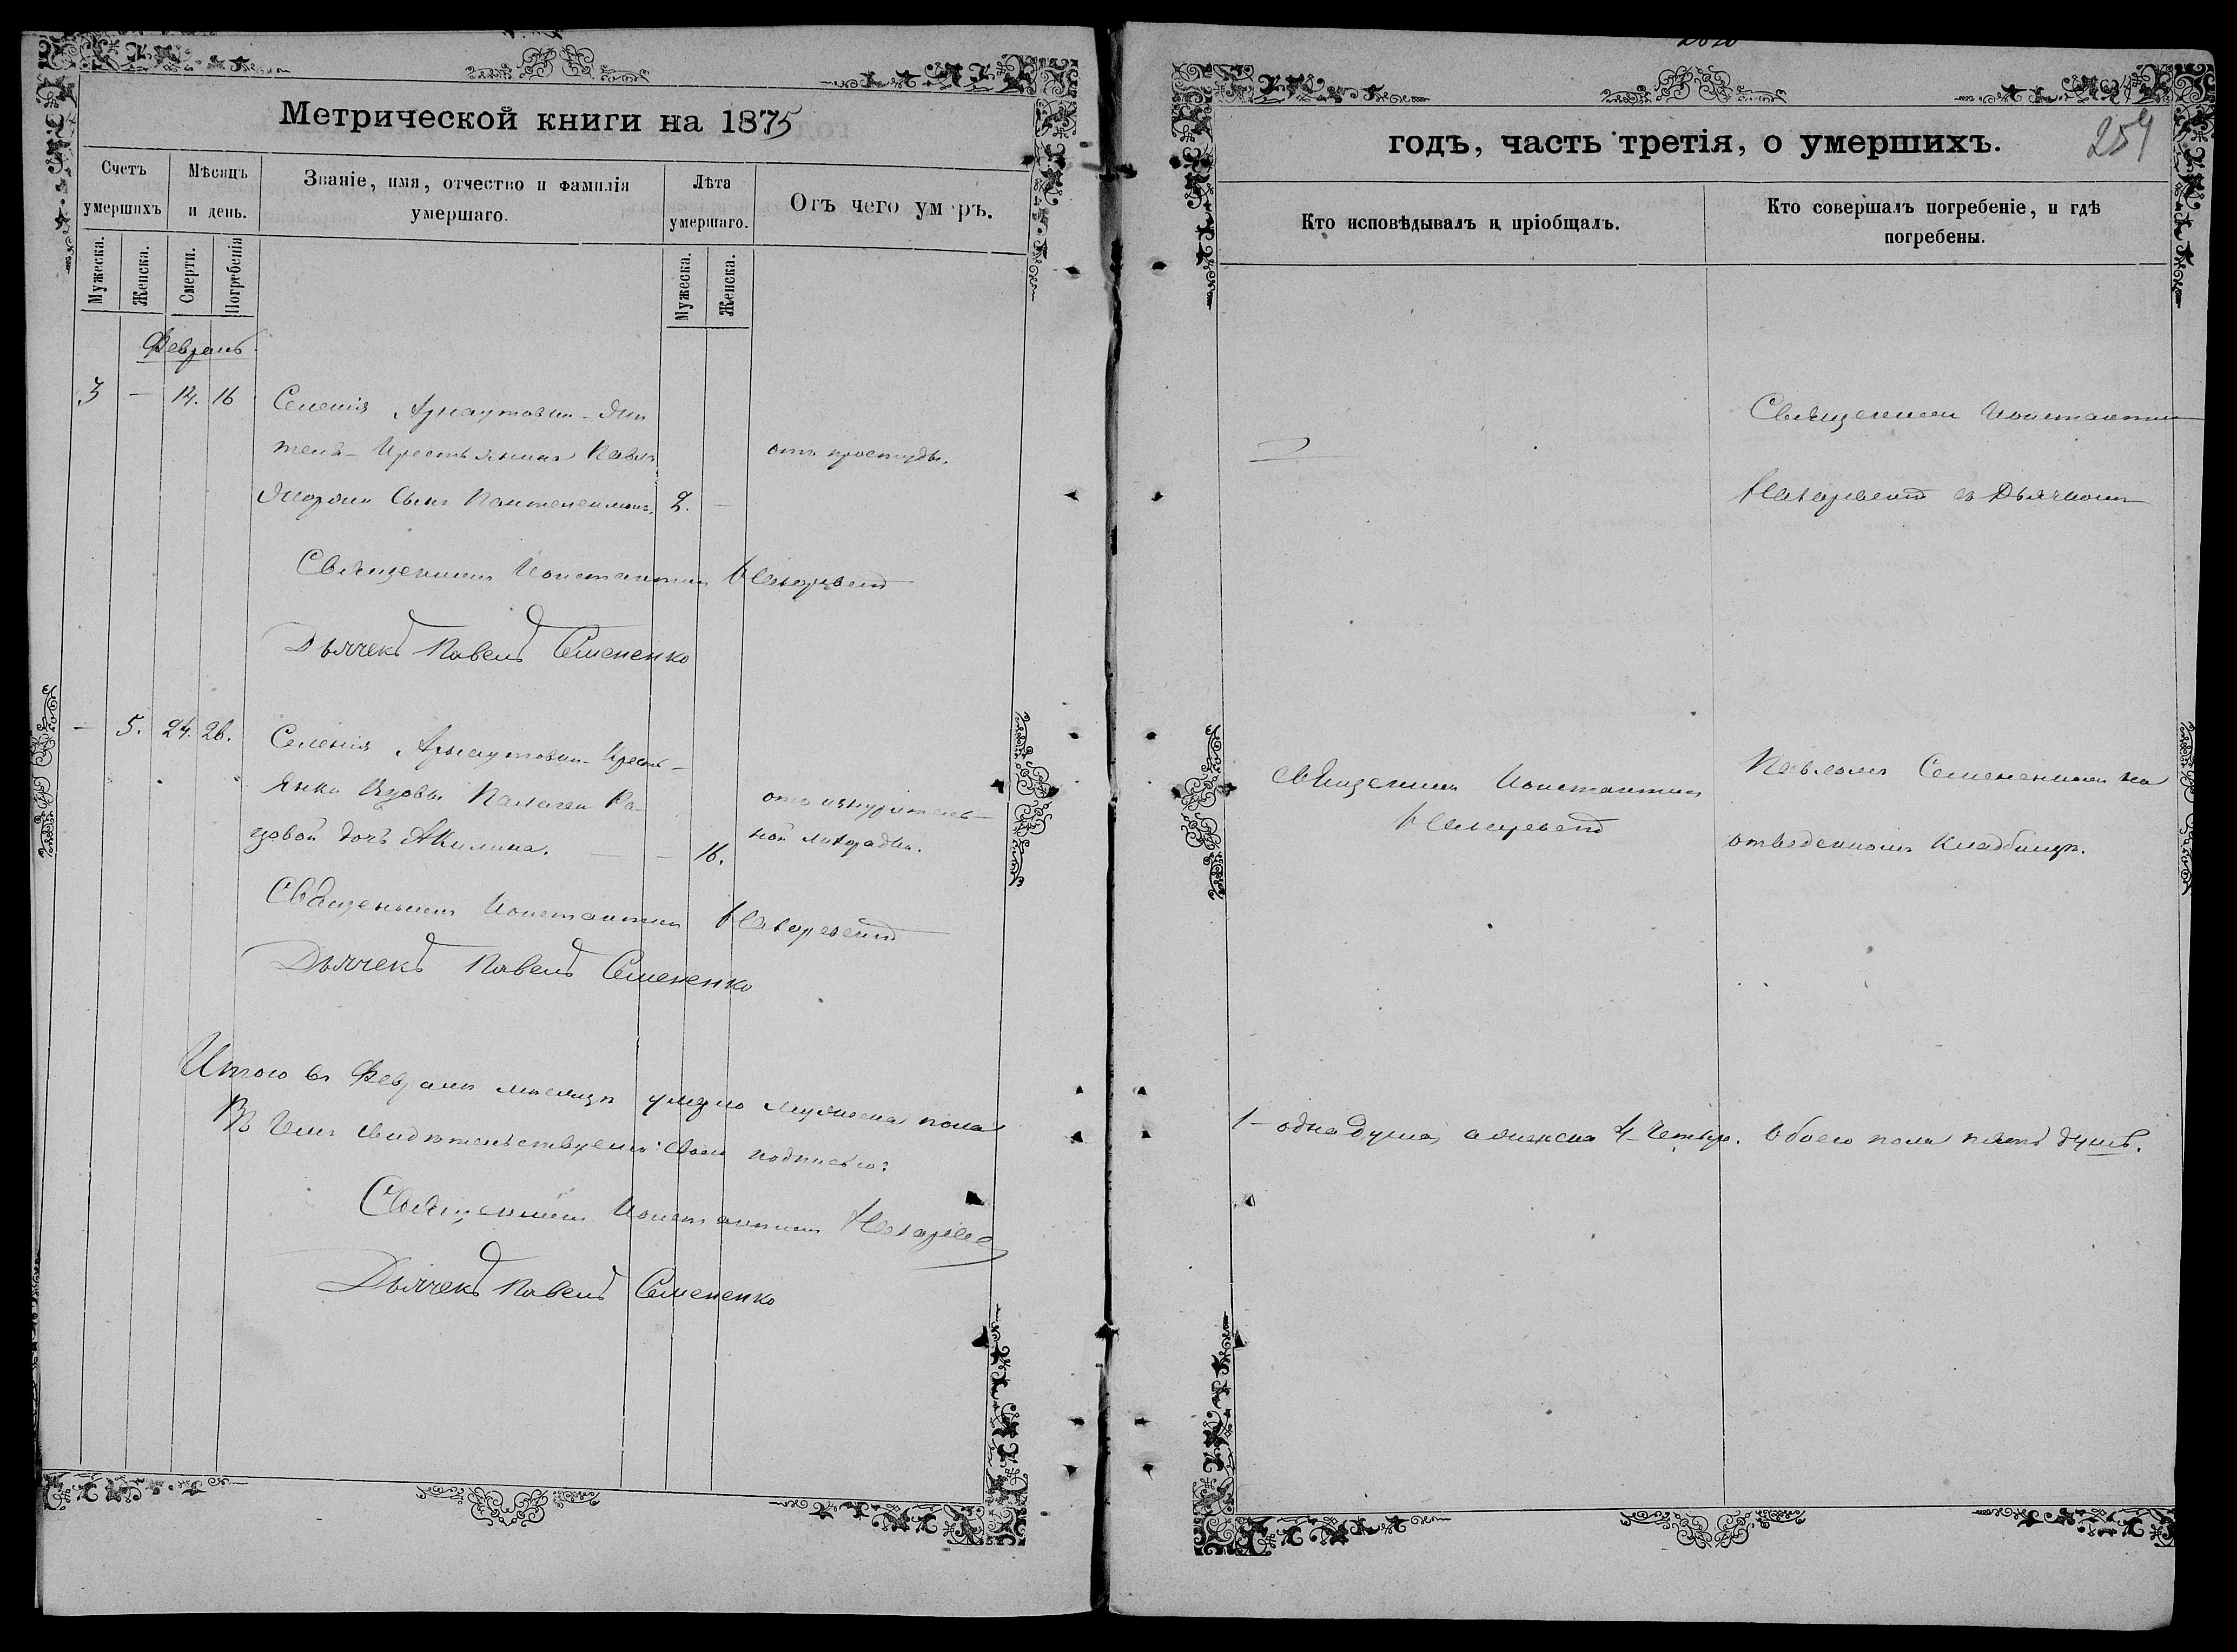 Метрической книги на 1875
Счетъ
умершихъ
Мѣсяцъ
и день.
Званіе, имя, отчество и фамилія
умершаго.
Лѣта
умершаго.
Отъ чего умеръ.
Мужеска.
Женска.
Смерти.
Погребенія
Мужеска.
Женска.
Февраль.
3 — 14. 16
Селенія Арнаутовки
Крестьянина Павла
Сынъ Пантелеимонъ. 2. —
отъ простуды.
Священникъ Константинъ
Дьячекъ Павелъ Семененко
— 5. 24. 26.
Селенія Арнаутовки Кресть-
янки Вдовы Палагеи Ра-
цовой дочь Акилина. — — 16.
отъ изнуритель-
ной лихорадки.
Священникъ Константинъ
Дьячекъ Павелъ Семененко
Итого въ Февралѣ мѣсяцѣ умерло мужеска пола
Въ чемъ свидѣтельствуемъ подписью:
Священникъ Константинъ
Дьячекъ Павелъ Семененко
годъ, часть третія, о умершихъ.
259
Кто исповѣдывалъ и пріобщалъ.
Кто совершалъ погребеніе, и гдѣ
погребены.
Священникъ Константинъ
съ Дьячкомъ
Священникъ Константинъ
Павломъ Семененкомъ на
отведенномъ кладбищѣ.
1 — одна душа, а женска 4 — четыре. Обоего пола пять душъ.